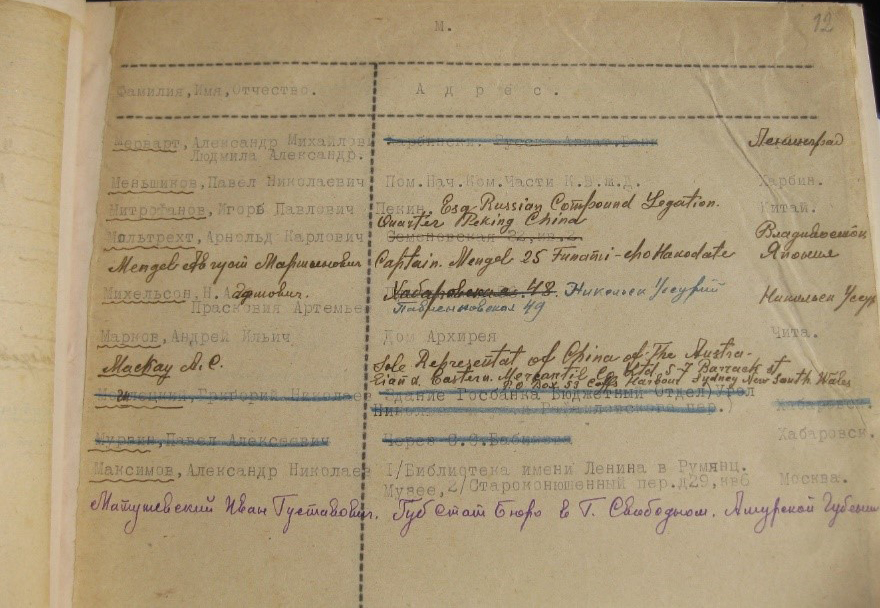 М.
12
Фамилия,Имя,Отчество. Адрес.
Мерварт,Александр Михайлов Ленинград
Людмила Александр.
Меньшиков,Павел Николаевич Пом.Нач.Ком.Части К.В.ж.Д. Харбин.
Митрофанов,Игорь Павлович Пекин. Esq Russian Compound Legation. Китай.
Quarter Peking China
Мольтрехт,Арнольд Карлович Семеновская 22,кв.2 Владивосток
Mengel Август Мартынович Captain. Mengel 25 Funami-cho Hakodate Япония
Михельсон,Н. Хабаровская 48 Никольск Уссурий Никольск Уссур
Прасковия Артемье Павреновская 49
Марков,Андрей Ильич Дом Архирея Чита.
Маскау А.С. Sole Representat of China of The Austra-
lian & Eastern Mercantil Co Ltd. 5-7 Barrack st
P.O Box 53 Coffs Harbour Sydney New South Wales
Григорий Николаев Здание Госбанка Бюджетный Отдел) Хабаровск.
пер.)
Мурзин,Павел Алексеевич Через Хабаровск.
Максимов,Александр Николаев 1/Библиотека имени Ленина в Румянц. Москва.
Музее,2/Староконюшенный пер.д29,кв6
Матушевский Иван Густавович. Губ Стат Бюро в Г. Свободном. Амурской Губернии